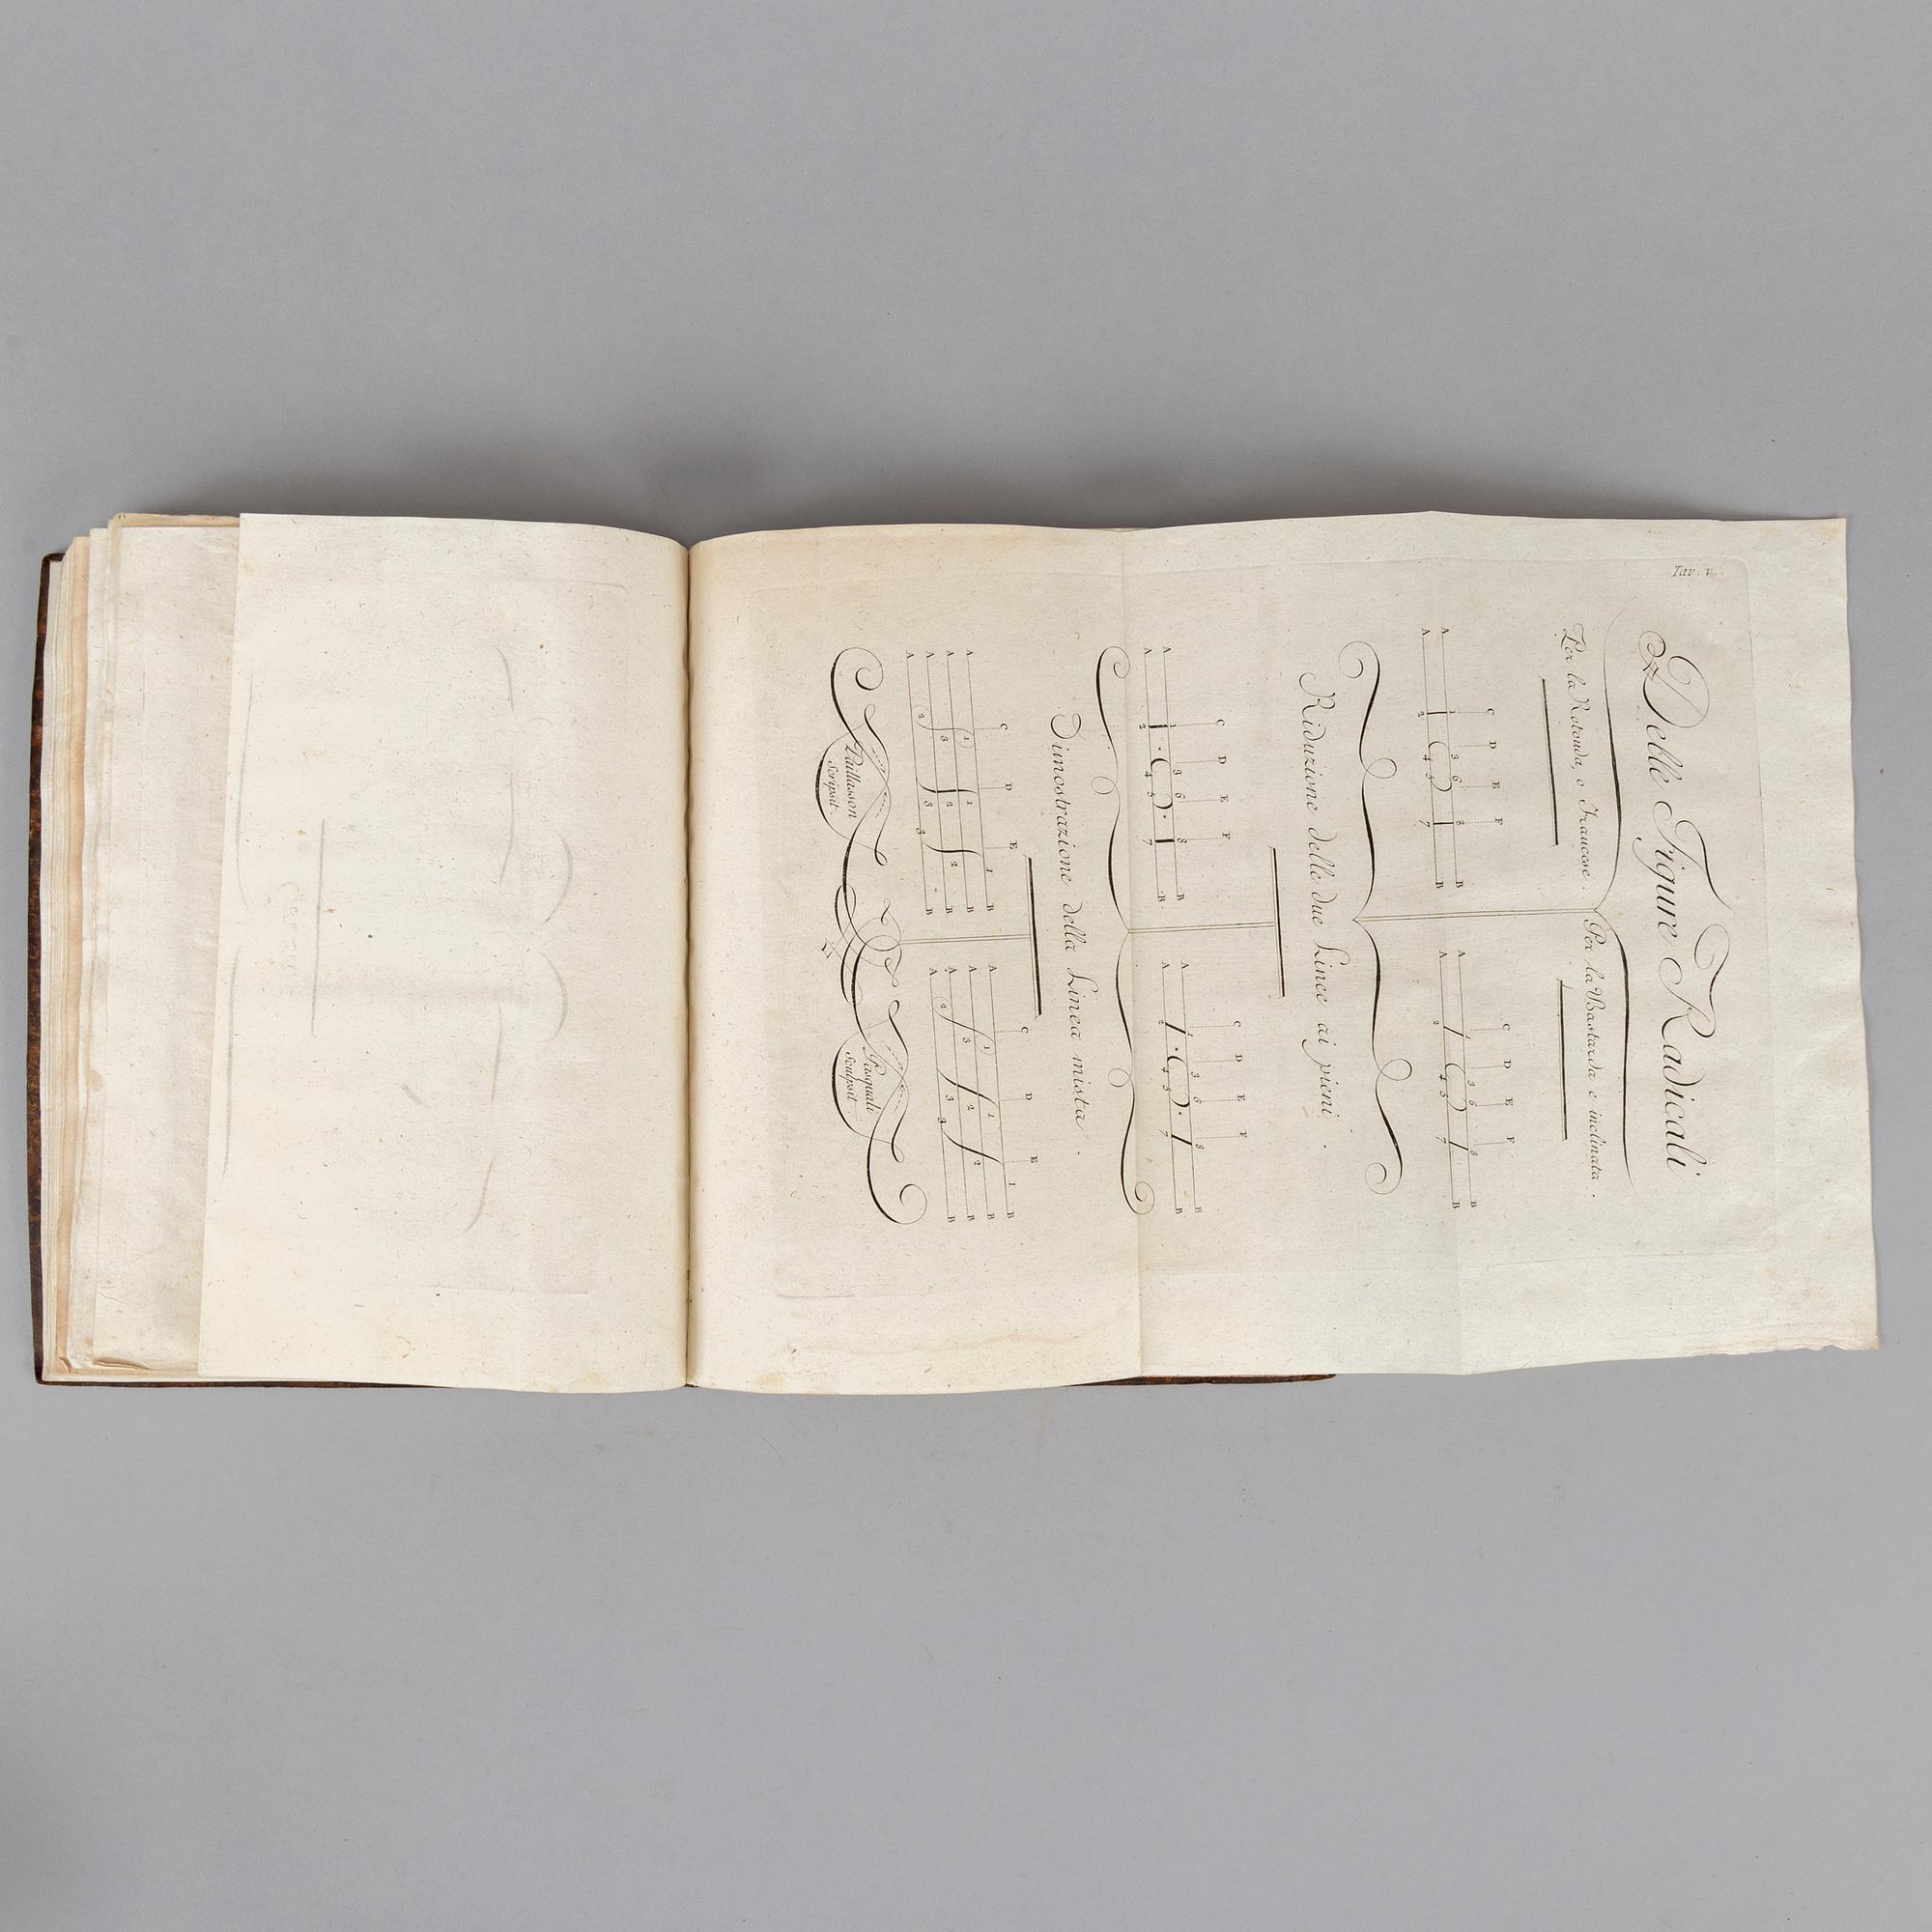 Tav. V.
Delle Figure Radicali
Per la Rotonda, o Francese.
Per la Bastarda e inclinata.
C D E F
A 1 3 6 8 B
A 2 4 5 7 B
C D E F
A 1 3 6 8 B
A 2 4 5 7 B
Riduzione delle due Linee ai pieni.
C D E F
A 1 3 6 8 B
A 2 4 5 7 B
C D E F
A 1 3 6 8 B
A 2 4 5 7 B
Dimostrazione della Linea mista.
C D E
A 1 1 1 B
A 3 2 2 B
A 2 3 B
A 3 B
C D E
A 1 1 1 B
A 3 2 2 B
A 2 3 3 B
A B
Paillasson
Scripsit.
Pasquali
Sculpsit